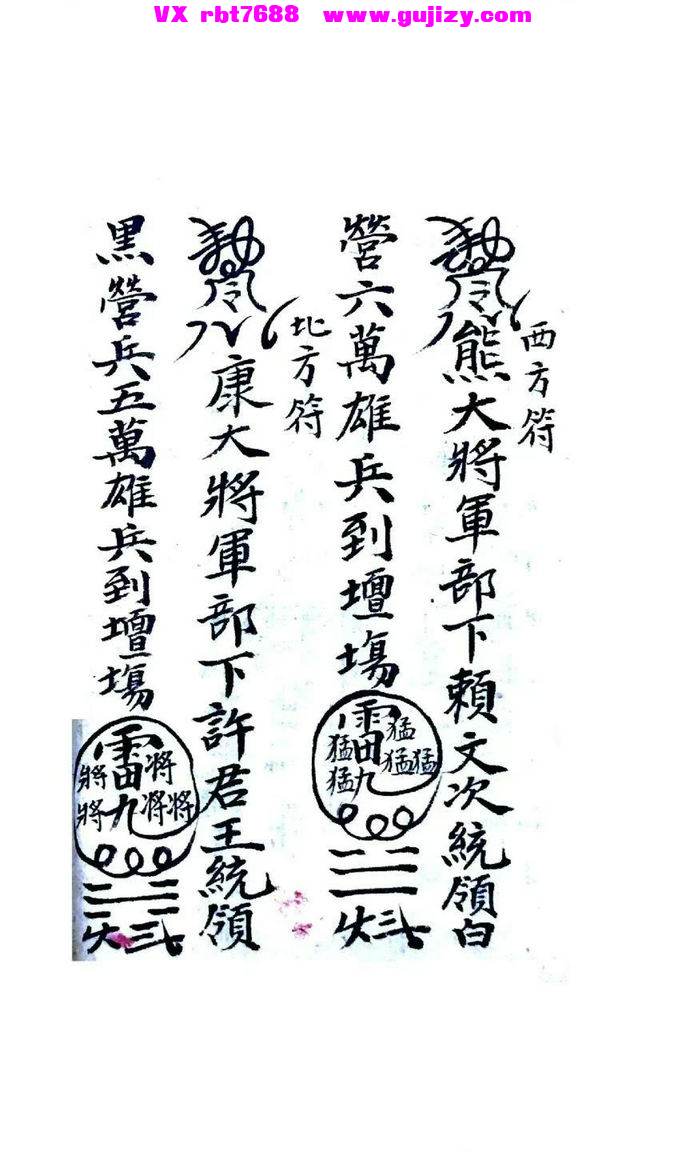 VX rbt7688 www.gujizy.com
西方符
勅令熊大將軍部下賴文次統領白
營六萬雄兵到壇塲
雷九猛猛猛猛猛
北方符
勅令康大將軍部下許君王統領
黑營兵五萬雄兵到壇塲
雷九將將將將將